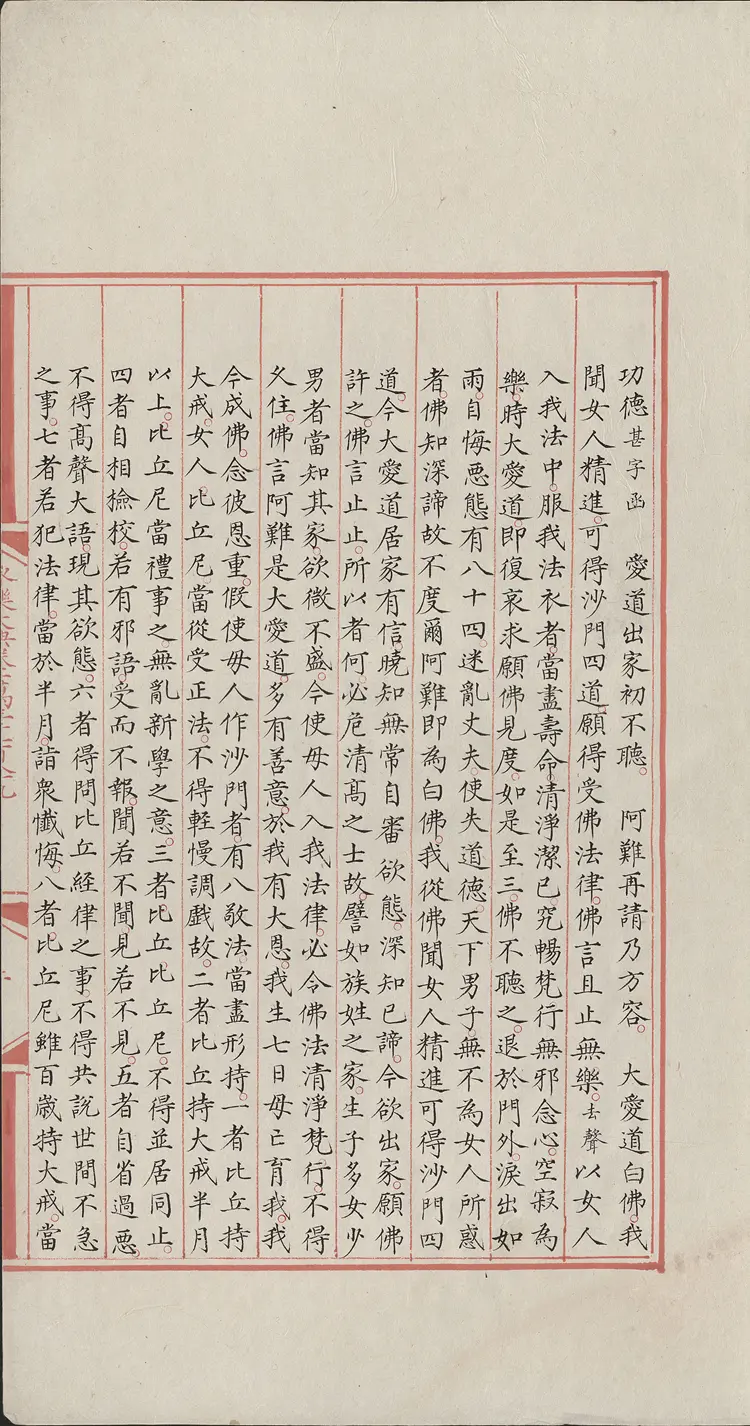 功德甚字函　愛道出家初不聽。　阿難再請乃方容。　大愛道白佛。我
聞女人精進。可得沙門四道。願得受佛法律。佛言且止無樂。去聲以女人
入我法中。服我法衣者。當盡壽命。清淨潔已。究暢梵行無邪念心。空寂為
樂。時大愛道。即復哀求願佛見度。如是至三。佛不聽之。退於門外。淚出如
雨。自悔惡態有八十四。迷亂丈夫。使失道德。天下男子。無不為女人所惑
者。佛知深諦故不度爾阿難即為白佛。我從佛聞女人精進可得沙門四
道。今大愛道居家有信。曉知無常自審欲態。深知已諦。今欲出家。願佛
許之。佛言止止。所以者何。必危清髙之士故。譬如族姓之家。生子多女少
男者當知其家。欲微不盛。今使母人入我法律。必令佛法清淨梵行。不得
久住。佛言阿難是大愛道。多有善意。於我有大恩。我生七日母亡育我。我
今成佛。念彼恩重。假使母人作沙門者。有八敬法當盡形持。一者比丘持
大戒。女人比丘尼。當從受正法。不得輕慢調戲故。二者比丘持大戒半月
以上。比丘尼當禮事之無亂新學之意。三者比丘比丘尼。不得並居同止。
四者自相撿校。若有邪語。受而不報。聞若不聞見若不見。五者自省過惡。
不得髙聲大語。現其欲態。六者得問比丘經律之事。不得共說世間不急
之事。七者若犯法律。當於半月。詣衆懺悔。八者。比丘尼雖百歲持大戒。當